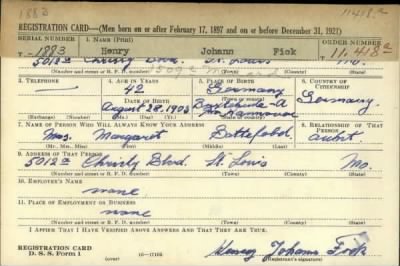 1883
11,418 a
REGISTRATION CARD—(Men born on or after February 17, 1897 and on or before December 31, 1921)
SERIAL NUMBER 1. NAME (Print) ORDER NUMBER
1883 Henry Johann Fick 11,418 a
5012a Blvd. St. Louis Mo.
(Number and street or R. F. D. number) (Town) (County) (State)
3. TELEPHONE 4. AGE IN YEARS 5. PLACE OF BIRTH 6. COUNTRY OF CITIZENSHIP
42 Germany
DATE OF BIRTH Germany
August 28, 1903
(Mo.) (Day) (Yr.) (State or country)
7. NAME OF PERSON WHO WILL ALWAYS KNOW YOUR ADDRESS 8. RELATIONSHIP OF THAT PERSON
Mrs. Margaret aunt
(Mr., Mrs., Miss) (First) (Middle) (Last)
9. ADDRESS OF THAT PERSON
5012a Blvd. St. Louis Mo.
(Number and street or R. F. D. number) (Town) (County) (State)
10. EMPLOYER'S NAME
none
11. PLACE OF EMPLOYMENT OR BUSINESS
none
(Number and street or R. F. D. number) (Town) (County) (State)
I AFFIRM THAT I HAVE VERIFIED ABOVE ANSWERS AND THAT THEY ARE TRUE.
REGISTRATION CARD
D. S. S. Form 1 (over) Henry Johann Fick
(Registrant's signature)